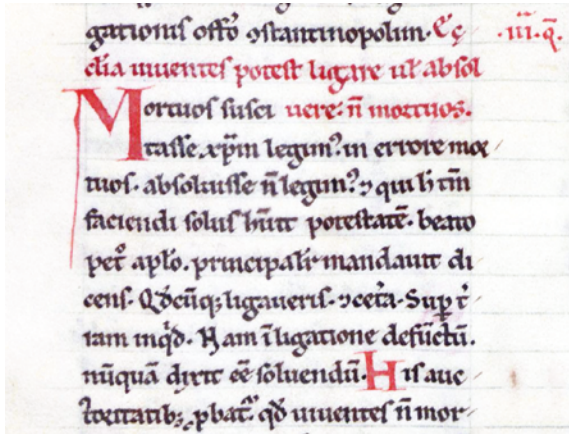 gationis offō ɔstantinopolim. Ecc̄ · iii · q̄ ·
cl̄ia uiuentes potest ligare ul̄ absol
Mortuos susci uere · n̄ mortuos.
tasse xp̄m legim᷒ · in errore mor
tuos · absoluisse n̄ legim᷒ · ⁊ qui h̄ tm̄
faciendi solus hūit potestatē · beato
pet̉ ap̄lo · principalit̉ mandauit di
cens · Qd̄cūq; ligaueris · ⁊ cet̉a · Sup t̉
ram inqd̄ · Nam ī ligatione defūctū ·
nūquā dixit eē soluendū · His auc
toritatib; ꝓbat᷑ · qd̄ uiuentes n̄ mor